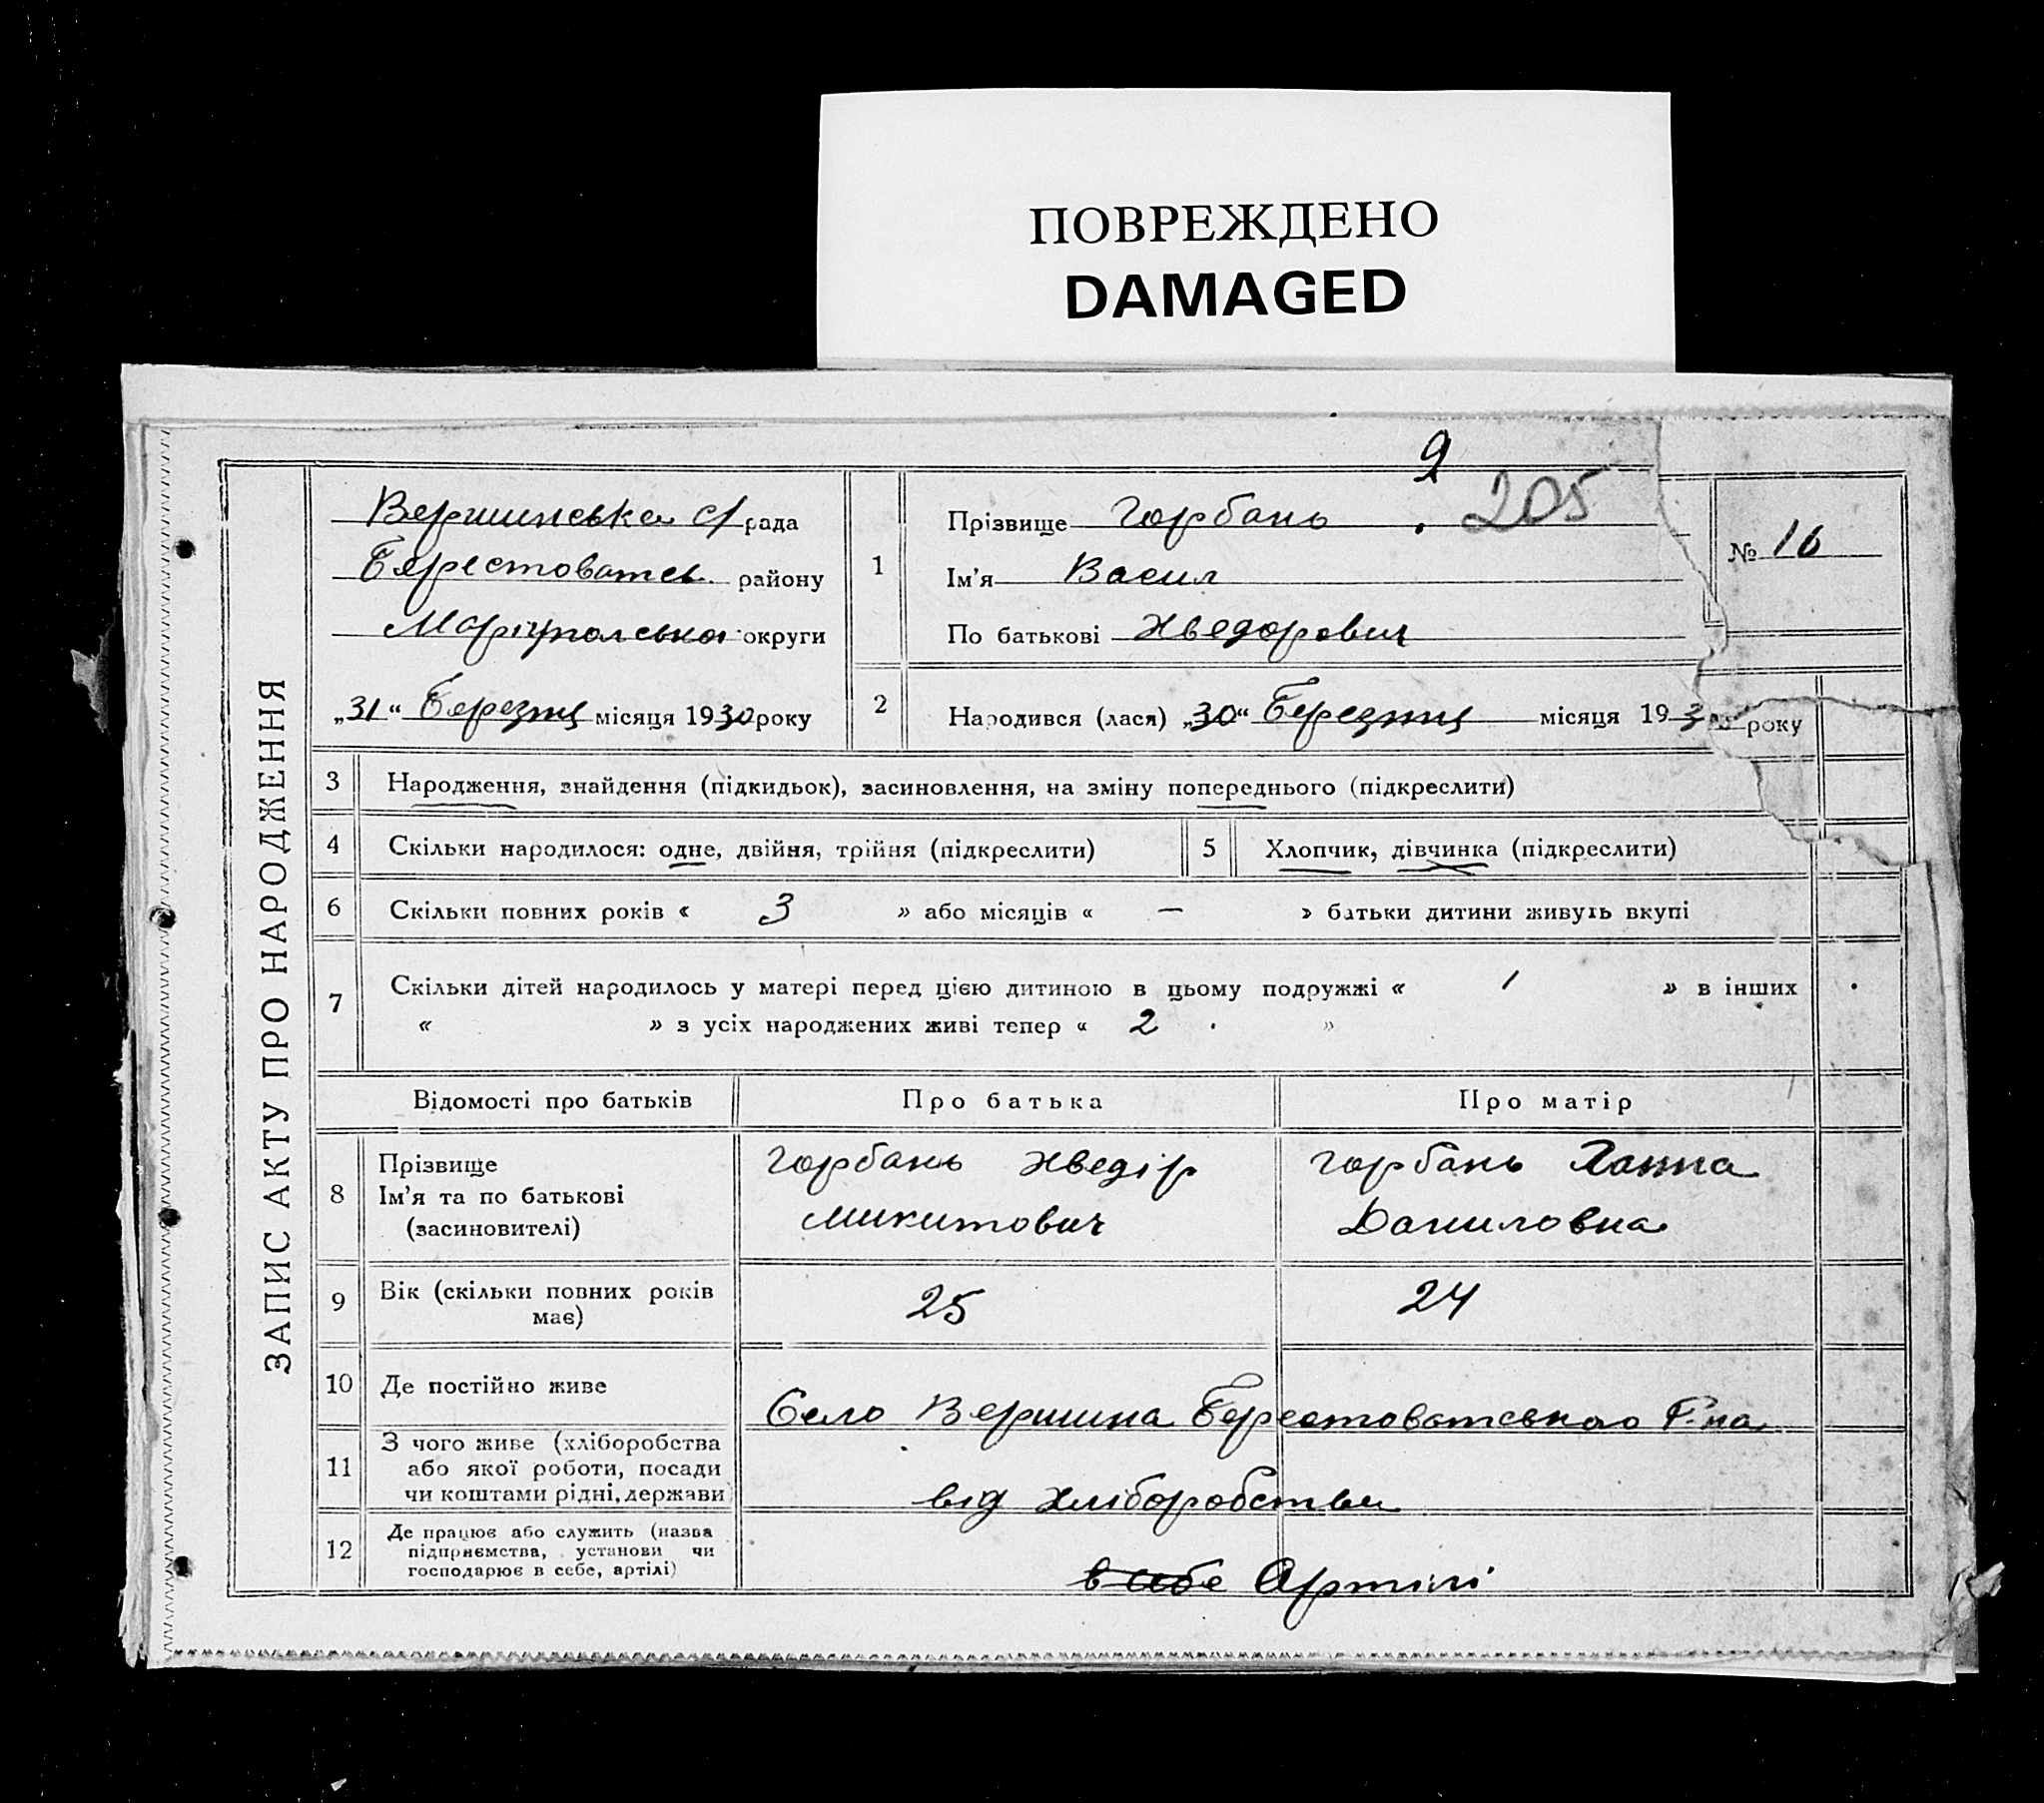 ПОВРЕЖДЕНО
DAMAGED
9
205
ЗАПИС АКТУ ПРО НАРОДЖЕННЯ
Вершинська с/рада
Берестоватсь. району
Маріупольської округи
„31“ Березня місяця 1930 року
1
Прізвище Горбань
Ім'я Васил
По батькові Хведорович
№ 16
2
Народився (лася) „30“ Березня місяця 1930 року
3 Народження, знайдення (підкидьок), засиновлення, на зміну попереднього (підкреслити)
4 Скільки народилося: одне, двійня, трійня (підкреслити)
5 Хлопчик, дівчинка (підкреслити)
6 Скільки повних років « 3 » або місяців « — » батьки дитини живуть вкупі
7 Скільки дітей народилось у матері перед цією дитиною в цьому подружжі « 1 » в інших
« » з усіх народжених живі тепер « 2 »
Відомості про батьків Про батька Про матір
8 Прізвище
Ім'я та по батькові
(засиновителі)
Горбань Хведір
Микитович
Горбань Ганна
Даниловна
9 Вік (скільки повних років
має)
25 24
10 Де постійно живе
Село Вершина Берестоватського Р-на
11 З чого живе (хліборобства
або якої роботи, посади
чи коштами рідні, держави)
від хліборобства
12 Де працює або служить (назва
підприємства, установи чи
господарює в себе, артілі)
в себе Артілі